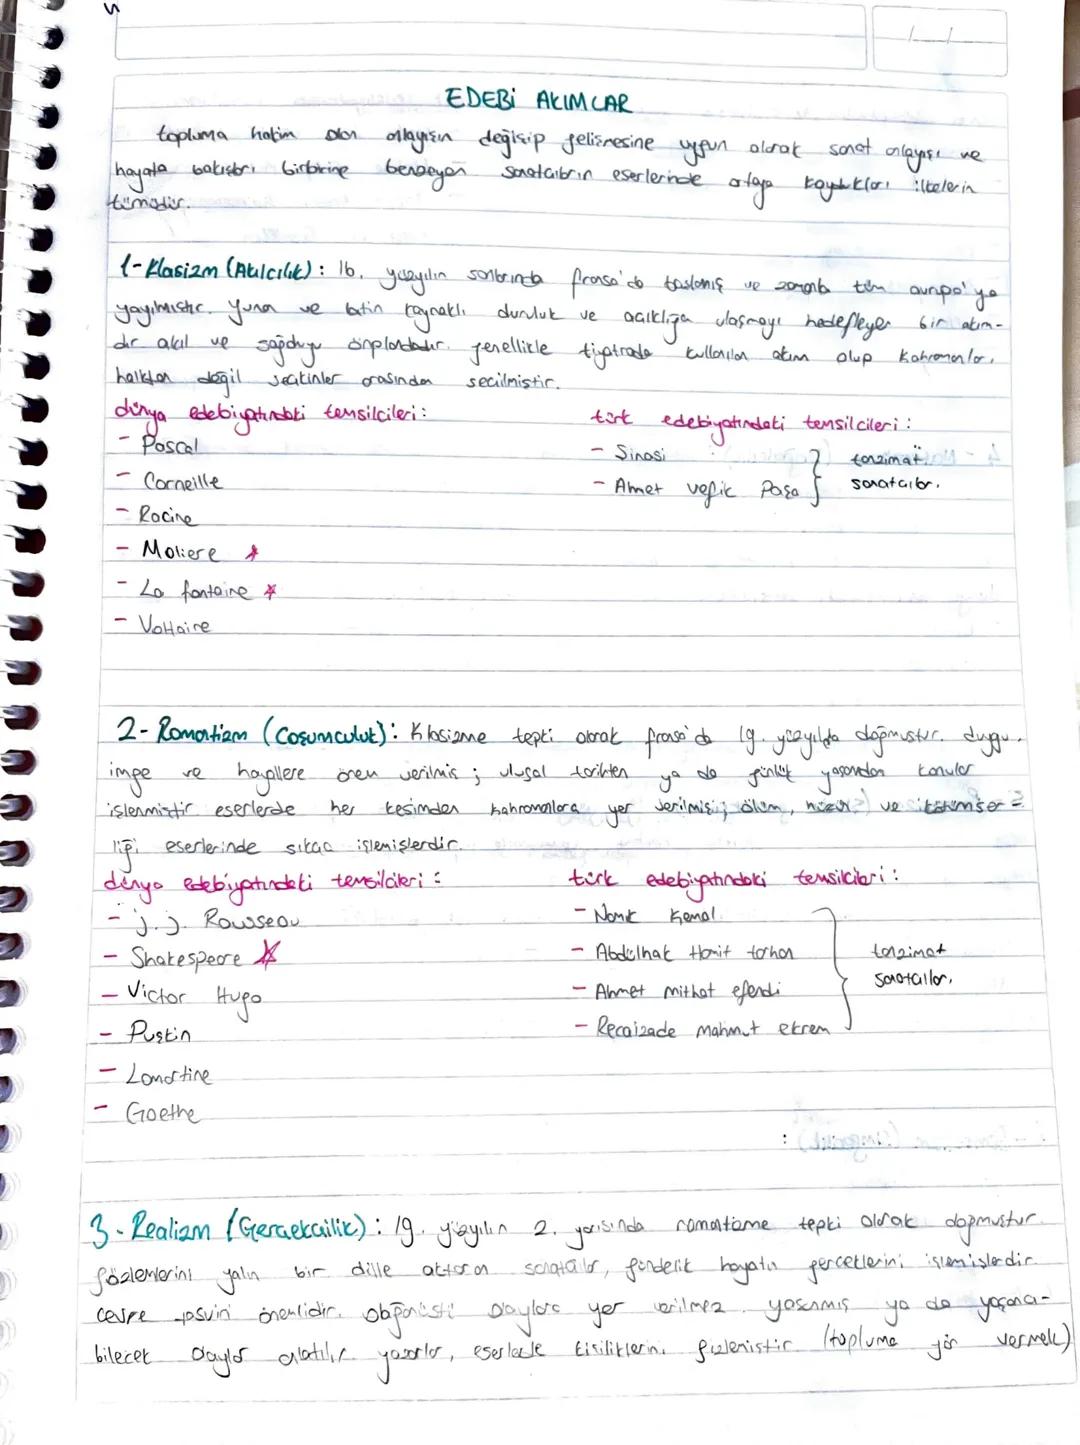 EDEBİ AKIMLAR
topluma hakim olan anlayışın değişip gelişmesine uygun olarak sanat anlayışı ve
hayata bakışları birbirine benzeyen sanatçıların eserlerinde ortaya koydukları ilkelerin
tümüdür.
1-Klasizm (Akılcılık) : 16. yüzyılın sonlarında fransa'da başlamış ve zamanla tüm avrupa'ya
yayılmıştır. Yunan ve latin kaynaklı duruluk ve açıklığa ulaşmayı hedefleyen bir akım-
dır akıl ve sağduyu önplandadır. genellikle tiyatroda kullanılan akım olup kahramanlar,
halktan değil seçkinler arasından seçilmiştir.
dünya edebiyatındaki temsilcileri :
- Pascal
- Corneille
- Racine
- Moliere ☆
- La fontaine ☆
- Voltaire
türk edebiyatındaki temsilcileri :
- Şinasi
- Ahmet vefik Paşa
tanzimat
sanatçıları.
2- Romantizm (Coşumculuk) : Klasizme tepki olarak fransa'da 19. yüzyılda doğmuştur. duygu,
imge ve hayallere önem verilmiş ; ulusal tarihten ya da günlük yaşamdan konular
işlenmiştir eserlerde her kesimden kahramanlara yer verilmiş ; ölüm, hüzün ve kötümser =
liği eserlerinde sıkça işlemişlerdir.
dünya edebiyatındaki temsilcileri :
- j. j. Rousseau
- Shakespeare ☆
- Victor Hugo
- Puşkin
- Lamartine
- Goethe
türk edebiyatındaki temsilcileri :
- Namık Kemal
- Abdülhak Hamit tarhan
- Ahmet mithat efendi
- Recaizade mahmut ekrem
tanzimat
sanatçıları.
3- Realizm (Gerçekçilik) : 19. yüzyılın 2. yarısında romantizme tepki olarak doğmuştur.
gözlemlerini yalın bir dille aktaran sanatçılar, gündelik hayatın gerçeklerini işlemişlerdir.
çevre tasviri önemlidir. olağanüstü olaylara yer verilmez. yaşanmış ya da yaşana-
bilecek olaylar anlatılır yazarlar, eserlerde kişiliklerini gizlemiştir (topluma yön vermek)